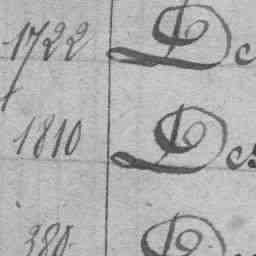 1722 De
1810 Des
380 De